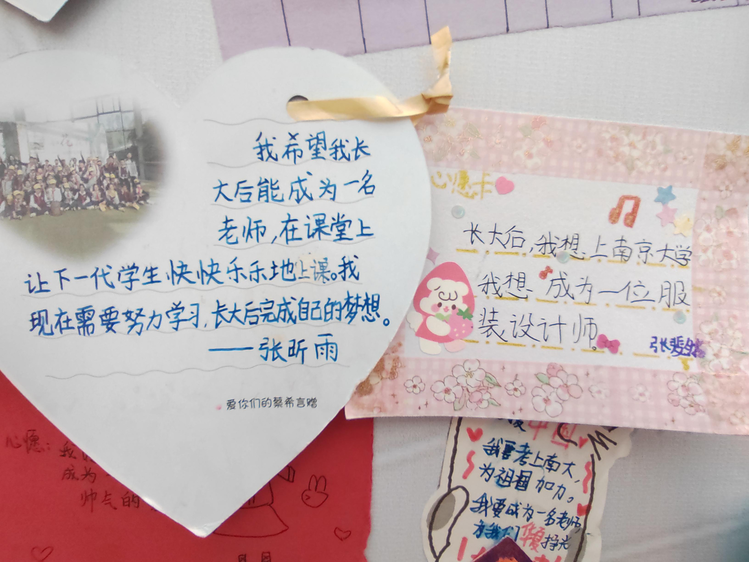 我希望我长
大后能成为一名
老师，在课堂上
让下一代学生快快乐乐地上课。我
现在需要努力学习，长大后完成自己的梦想。
——张昕雨
爱你们的蔡希言赠
心愿卡
长大后，我想上南京大学
我想 成为一位服
装设计师。
张
心愿：我
成为
帅气的
我要考上南大，
为祖国加力。
我要成为一名老师
为我们